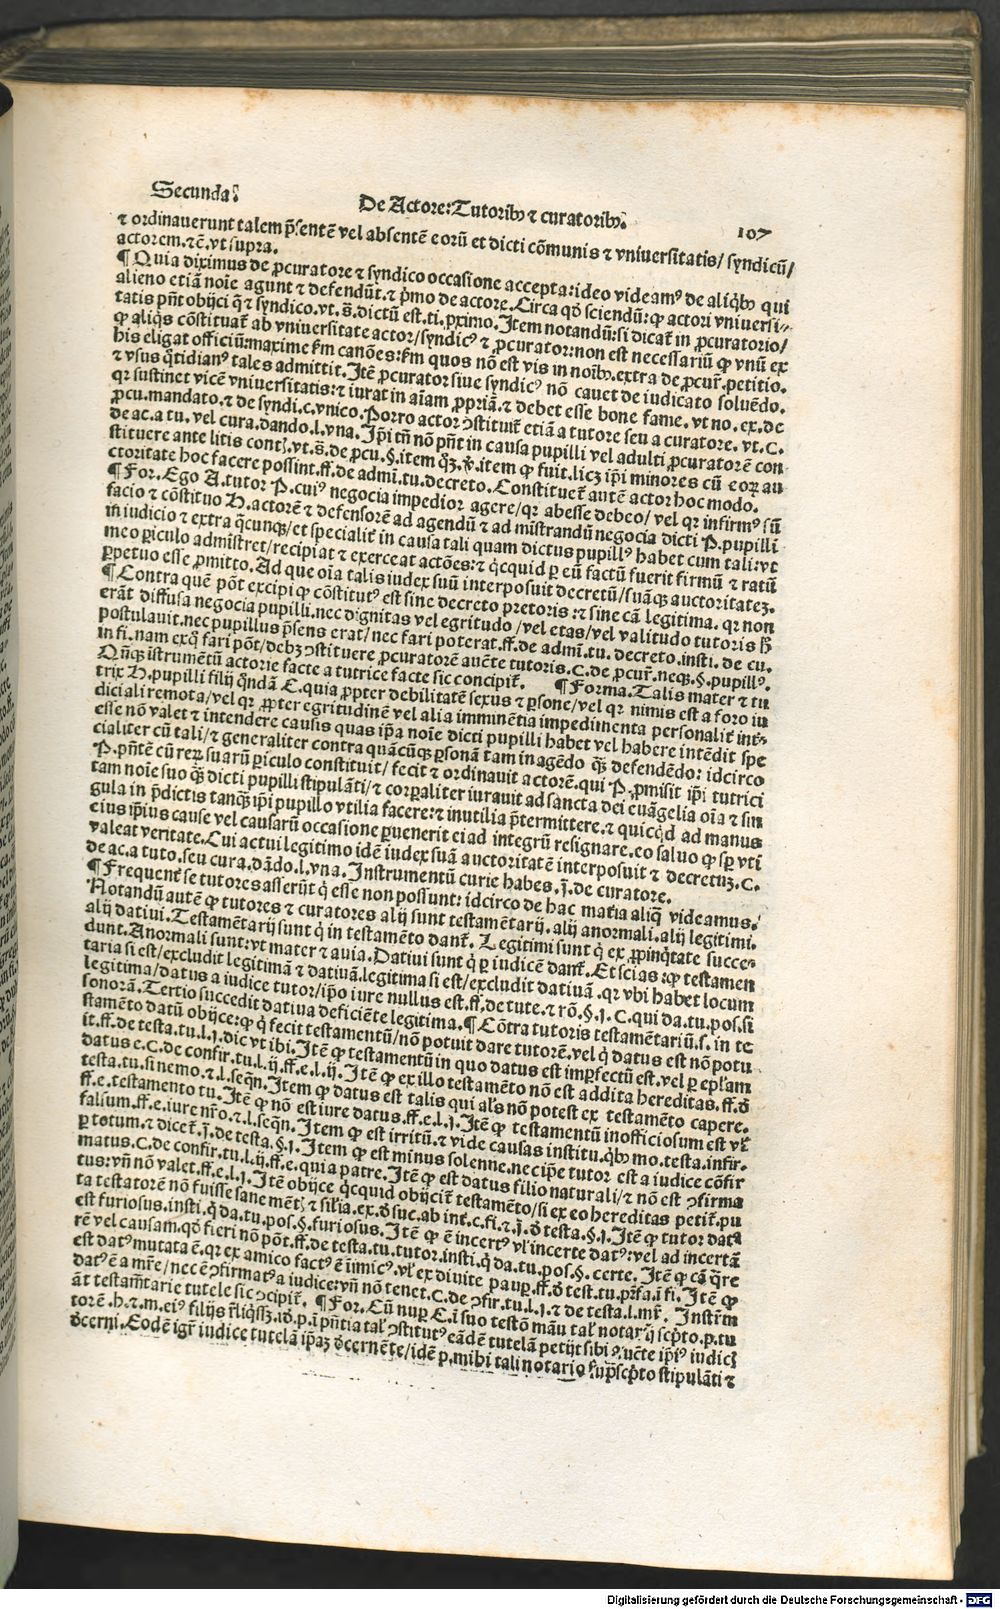 Secunda. De Actore: Tutorib⁹ ⁊ curatorib⁹. 107
⁊ ordinauerunt talem p̄sentē vel absentē eorū et dicti cōmunis ⁊ vniuersitatis/ syndicū/
actorem.⁊ č.vt supra.
¶ Quia diximus de ꝓcuratore ⁊ syndico occasione accepta: ideo videam⁹ de aliq̇b⁹ qui
alieno etiā noīe agunt ⁊ defendūt.⁊ p̄mo de actore. Circa qd̄ sciendū: ꝙ actori vniuersi-
tatis pn̄t obijci q̄ ⁊ syndico.vt.s̄.dictū est.ti.ꝓximo. Item notandū: si dicat̄ in ꝓcuratorio/
ꝙ aliq̇s cōstituat̄ ab vniuersitate actor/syndic⁹ ⁊ ꝓcurator: non est necessariū ꝙ vnū ex
his eligat officiū: maxime fm canōes: fm quos nō est vis in noīb⁹.extra de ꝓcur̄.petitio.
⁊ vsus q̄tidian⁹ tales admittit. Itē ꝓcurator siue syndic⁹ nō cauet de iudicato soluēdo.
qꝛ sustinet vicē vniuersitatis: ⁊ iurat in aīam ꝓpriā.⁊ debet esse bone fame. vt no. ex. de
ꝓcu.mandato.⁊ de syndi.c.vnico. Porro actor ꝯstituit̄ etiā a tutore seu a curatore. vt. C.
de ac.a tu. vel cura.dando.l.vna. Ip̄i tn̄ nō pn̄t in causa pupilli vel adulti ꝓcuratorē con
stituere ante litis conť.vt.s̄.de ꝓcu.§.item q̄ꝫ.℣.item ꝙ fuit.licꝫ ip̄i minores cū eoꝝ au
ctoritate hoc facere possint.ff.de admī.tu.decreto. Constituet̄ autē actor hoc modo.
¶ For. Ego A. tutor P. cui⁹ negocia impedior agere/ qꝛ abesse debeo/ vel qꝛ infirm⁹ sū
facio ⁊ cōstituo H. actorē ⁊ defensorē ad agendū ⁊ ad mīstrandū negocia dicti P. pupilli
in iudicio ⁊ extra q̄cunqꝫ/et specialit̄ in causa tali quam dictus pupill⁹ habet cum tali: vt
meo ꝑiculo admīstret/recipiat ⁊ exerceat actōes: ⁊ q̇cquid ꝑ eū factū fuerit firmū ⁊ ratū
ꝑpetuo esse ꝓmitto. Ad que oīa talis iudex suū interposuit decretū/suāqꝫ auctoritateꝫ.
¶ Contra quē pōt excipi ꝙ cōstitut⁹ est sine decreto pretoris: ⁊ sine cā legitima. qꝛ non
erāt diffusa negocia pupilli.nec dignitas vel egritudo /vel etas/vel valitudo tutoris h̄
postulauit.nec pupillus p̄sens erat/ nec fari poterat.ff.de admī.tu.decreto.insti. de cu.
in fi.nam exq̄ fari pōt/debꝫ ꝯstituere ꝓcuratorē auēte tutoris.C.de ꝓcur̄.neqꝫ.§.pupill⁹.
Qn̄qꝫ īstrumētū actorie facte a tutrice facte sic concipit̄. ¶ Forma. Talis mater ⁊ tu
trix H. pupilli filij q̄ndā C. quia ꝓpter debilitatē sexus ⁊ ꝑsone/ vel qꝛ nimis est a foro iu
diciali remota/vel qꝛ ꝓpter egritudinē vel alia imminētia impedimenta personalit̄ int̄-
esse nō valet ⁊ intendere causis quas ip̄a noīe dicti pupilli habet vel habere intēdit spe
cialiter cū tali/ ⁊ generaliter contra quācūqꝫ ꝑsonā tam in agēdo qꝫ defendēdo: idcirco
P. pn̄tē cū reꝝ suarū ꝑiculo constituit/ fecit ⁊ ordinauit actorē.qui P. ꝓmisit ip̄i tutrici
tam noīe suo qꝫ dicti pupilli stipulāti/ ⁊ corꝑaliter iurauit ad sancta dei euāgelia oīa ⁊ sin
gula in p̄dictis tanqꝫ ip̄i pupillo vtilia facere: ⁊ inutilia p̄termittere.⁊ quicq̇d ad manus
eius ip̄ius cause vel causarū occasione ꝑuenerit ei ad integrū resignare.eo saluo ꝙ sp̄ vti
valeat veritate. Cui actui legitimo idē iudex suā auctoritatē interposuit ⁊ decretuꝫ. C.
de ac.a tuto.seu cura.dādo.l.vna. Instrumentū curie habes.j̄.de curatore.
¶ Frequent̄ se tutores asserūt q̇ esse non possunt: idcirco de hac mat̄ia aliq̄ videamus.
Notandū autē ꝙ tutores ⁊ curatores alij sunt testamētarij.alij anormali.alij legitimi.
alij datiui. Testamētarij sunt q̇ in testamēto dant̄. Legitimi sunt q̇ ex ꝓpinq̄tate succe-
dunt. Anormali sunt: vt mater ⁊ auia. Datiui sunt q̇ ꝑ iudicē dant̄. Et scias: ꝙ testamen
taria si est/excludit legitimā ⁊ datiuā.legitima si est/excludit datiuā.qꝛ vbi habet locum
legitima/datus a iudice tutor/ip̄o iure nullus est.ff.de tute.⁊ rō.§.j.C.qui da.tu.pos.si
sonorā. Tertio succedit datiua deficiēte legitima. ¶ Cōtra tutoris testamētari ū.s̄. in te
stamēto datū obijce: ꝙ q̇ fecit testamentū/nō potuit dare tutorē.vel q̇ datus est nō potu
it.ff.de testa.tu.l.j.dic vt ibi. Itē ꝙ testamentū in quo datus est imꝑfectū est.vel ꝑ epl̄am
datus e.C.de confir.tu.l.ij.ff.e.l.ij. Itē ꝙ ex illo testamēto nō est addita hereditas. ff. d̄
testa.tu.si nemo.⁊.l.seqn̄. Item ꝙ datus est talis qui al̄s nō potest ex testamēto capere.
ff.e.testamento tu. Itē ꝙ nō est iure datus.ff.e.l.j. Itē ꝙ testamentū inofficiosum est vl̄
falsum.ff.e.iure nr̄o.⁊.l.seqn̄. Item ꝙ est irritū.⁊ vide causas institu.q̇b⁹ mo.testa.infir.
ꝑ totum.⁊ dicet̄.j̄.de testa.§.j. Item ꝙ est minus solenne.necip̄e tutor est a iudice cōfir
matus.C.de confir.tu.l.ij.ff.e.qui a patre. Itē ꝙ est datus filio naturali/⁊ nō est ꝯfirma
tus: vn̄ nō valet.ff.e.l.j. Itē obijce q̇cquid obijcit̄ testamēto/si ex eo hereditas petit̄.pu
ta testatorē nō fuisse sane mentꝫ ⁊ sil̄ia.ex.d̄ suc.ab int̄.c.fi.⁊.j̄.d̄ testa.§.j. Itē ꝙ tutor dat⁹
est furiosus.insti.q̇ da.tu.pos.§.furiosus. Itē ꝙ ē incert⁹ vl̄ incerte dat⁹: vel ad incertā
rē vel causam.qd̄ fieri nō pōt.ff.de testa.tu.tutor.insti.q̇ da.tu.pos.§. certe. Itē ꝙ cā q̄re
est dat⁹ mutata ē.qꝛ ex amico fact⁹ ē inimic⁹.vl̄ ex diuite pauꝑ.ff.d̄ test.tu.pr̄fa.ī fi. Itē ꝙ
dat⁹ ē a mr̄e/ nec ē ꝯfirmat⁹ a iudice: vn̄ nō tenet.C.de ꝯfir.tu.l.j.⁊ de testa.l.mr̄. Instr̄m
āt testam̄tarie tutele sic ꝯcipit̄. ¶ For. Cū nuꝑ C. ī suo testō māu tal̄ notarij scp̄to.p.tu
torē.h.⁊.m.ei⁹ filijs r̄liq̇ssꝫ.iō.p.ī pn̄tia tal̄ ꝯstitut⁹ eādē tutelā petijt sibi ꝯuēte ip̄i⁹ iudicꝫ
d̄cerni. Eodē igr̄ iudice tutelā ip̄aꝫ d̄cernēte/idē p.mihi tali notario sup̄scp̄to stipulāti ⁊
Digitalisierung gefördert durch die Deutsche Forschungsgemeinschaft - DFG